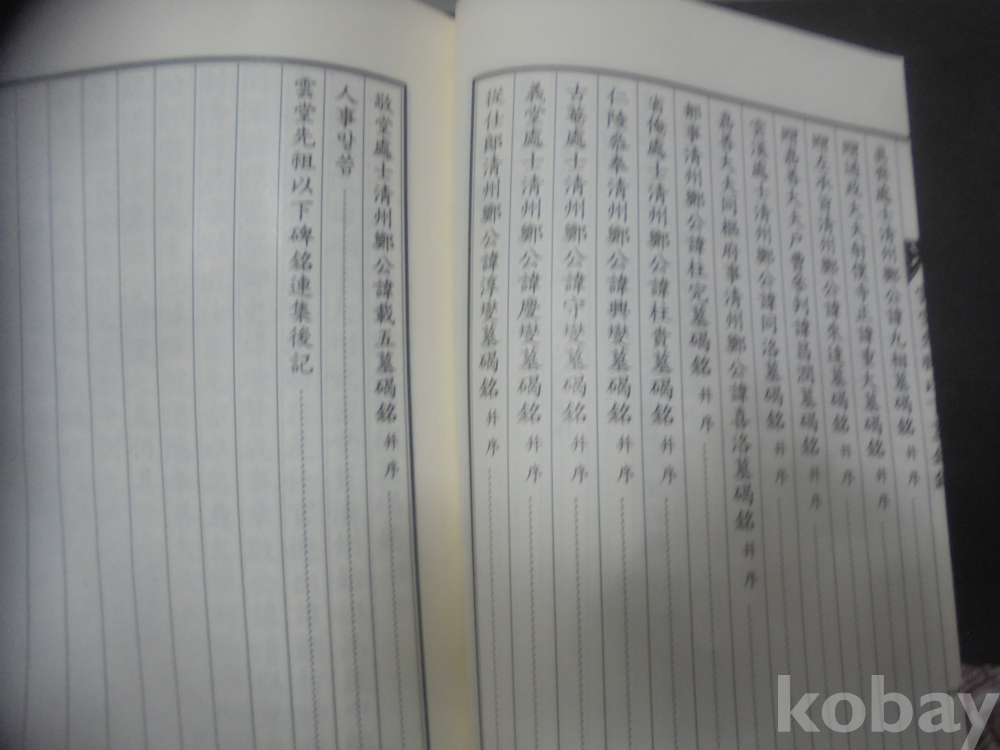 處士淸州鄭公諱九相墓碣銘 幷序
贈通政大夫 寺正諱重大墓碣銘 幷序
贈左承旨淸州鄭公諱 達墓碣銘 幷序
贈嘉善大夫戶曹參判諱昌潤墓碣銘 幷序
雲溪處士淸州鄭公諱同洛墓碣銘 幷序
嘉善大夫同樞府事淸州鄭公諱喜洛墓碣銘 幷序
都事淸州鄭公諱柱完墓碣銘 幷序
處士淸州鄭公諱柱貴墓碣銘 幷序
仁陵參奉淸州鄭公諱興燮墓碣銘 幷序
古菴處士淸州鄭公諱守燮墓碣銘 幷序
義堂處士淸州鄭公諱慶燮墓碣銘 幷序
從仕郞淸州鄭公諱淳燮墓碣銘 幷序
敬堂處士淸州鄭公諱載五墓碣銘 幷序
人事말씀
雲堂先祖以下碑銘連集後記
kobay